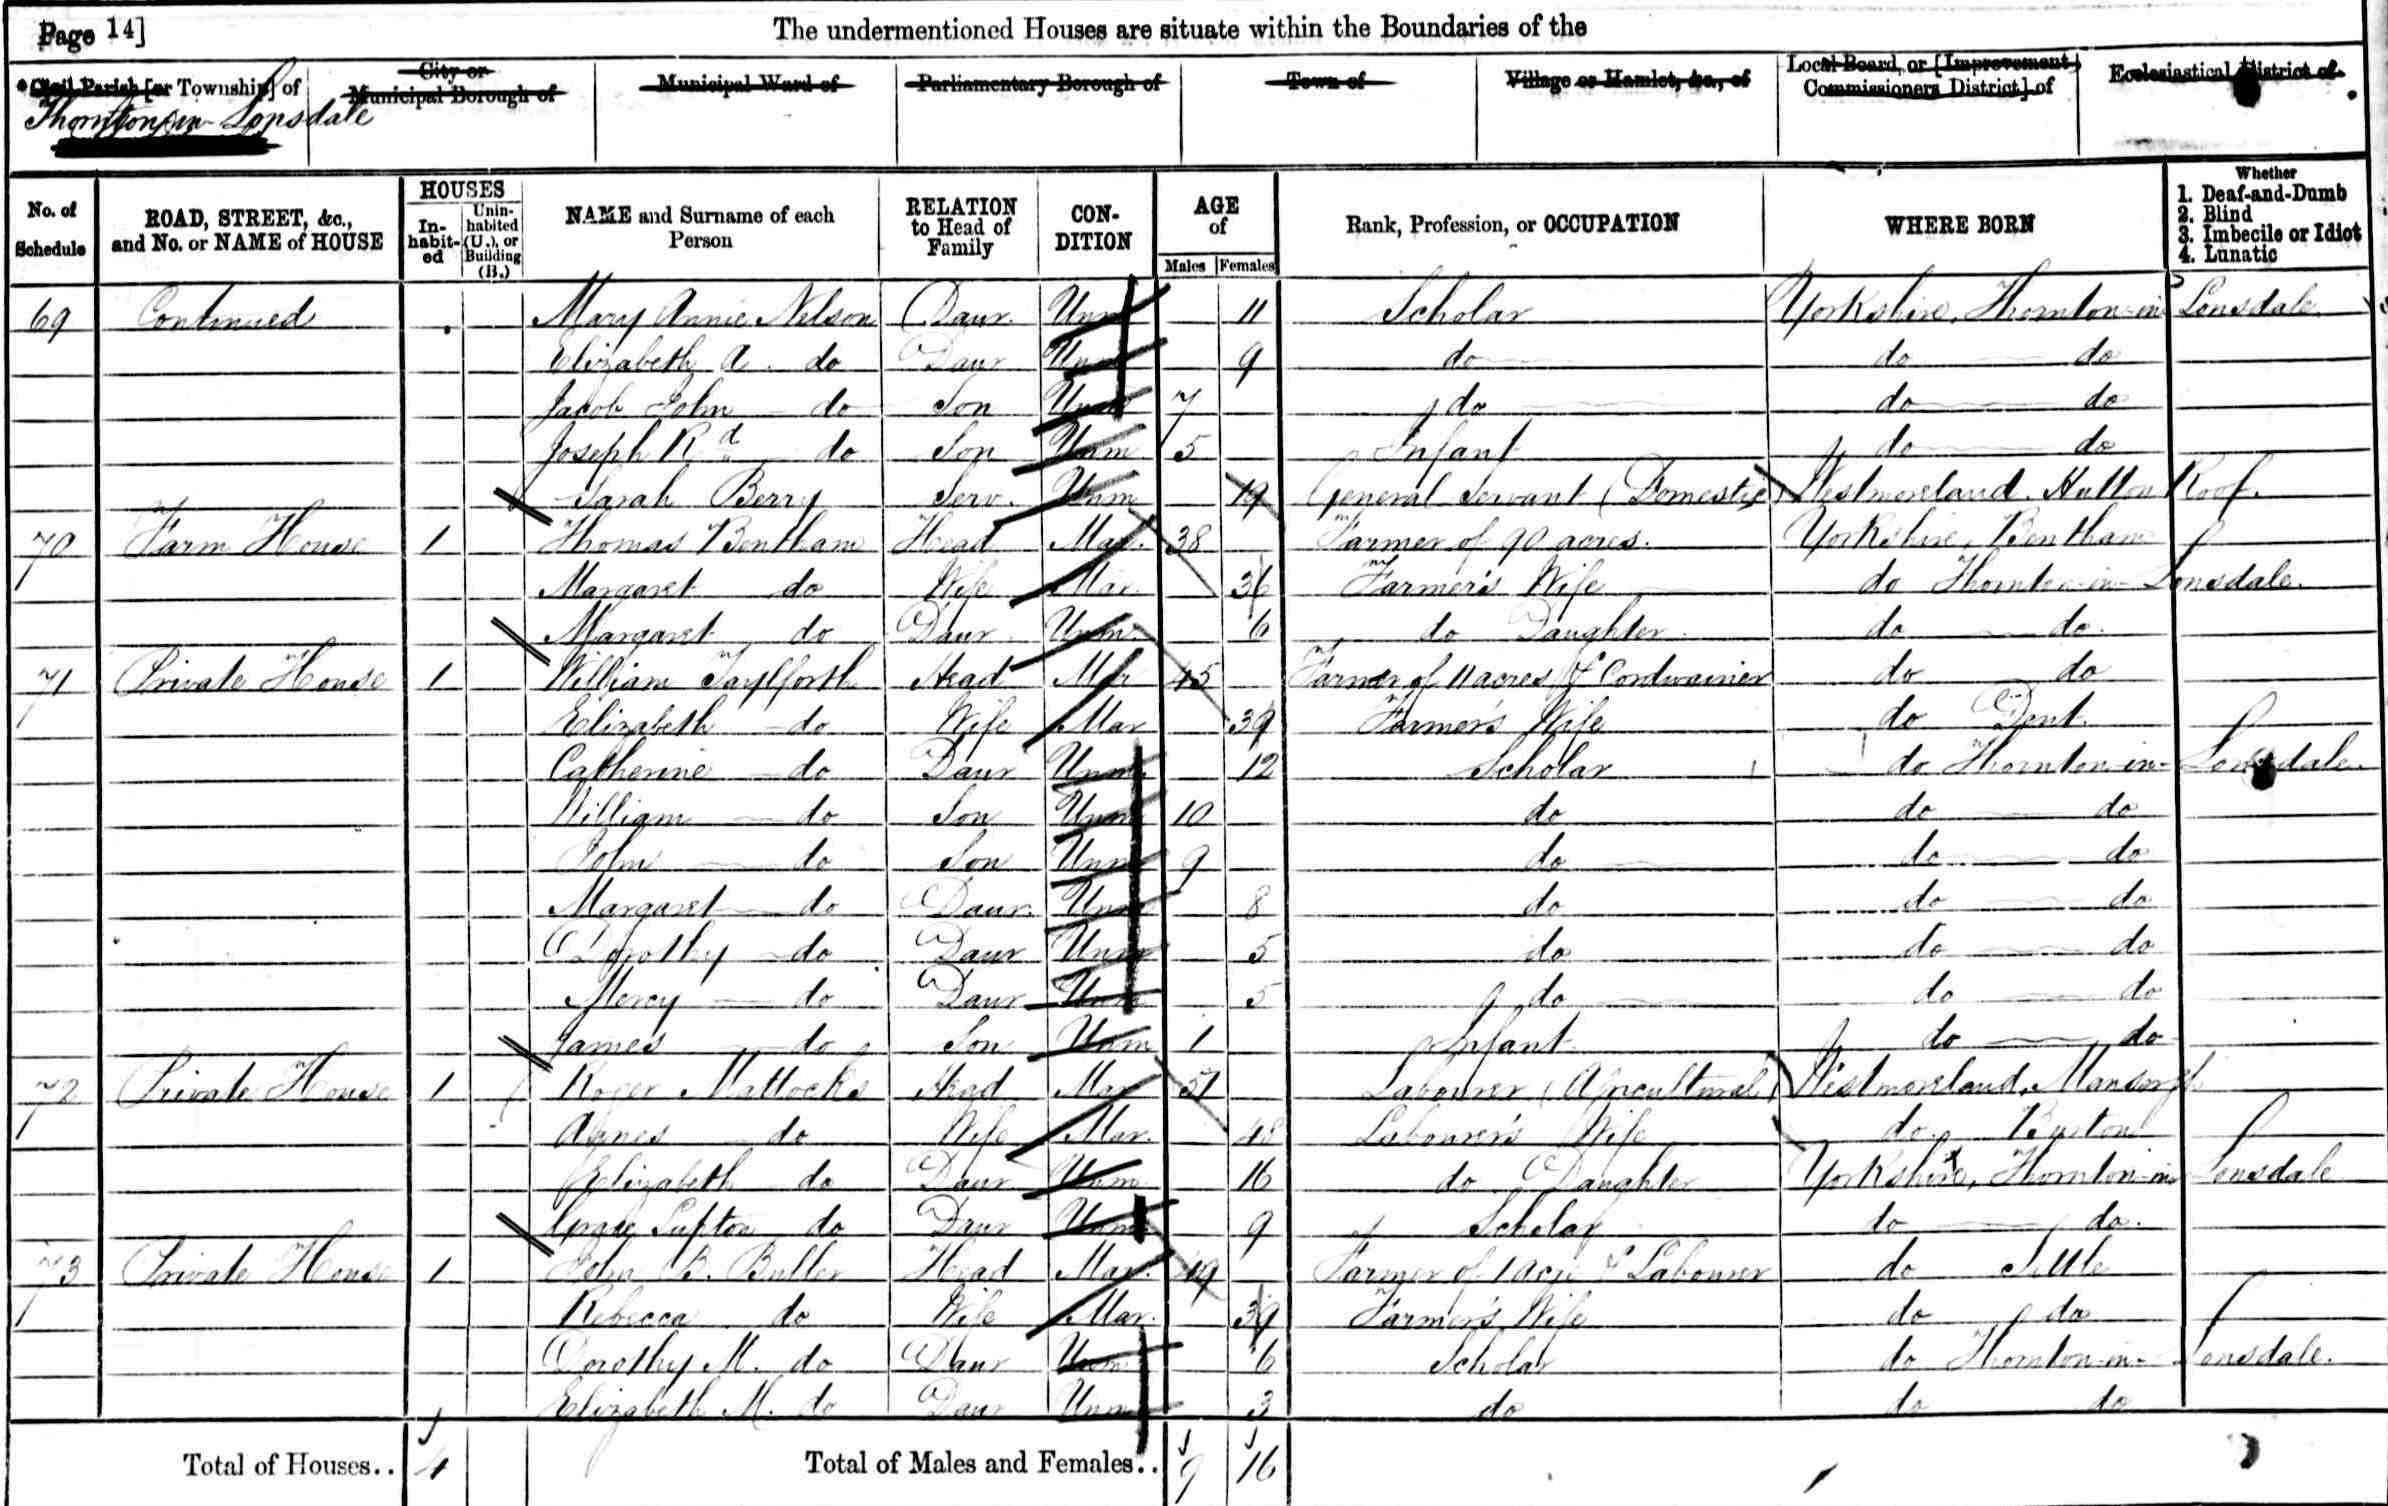 Page 14]
The undermentioned Houses are situate within the Boundaries of the
Civil Parish [or Township] of
City or Municipal Borough of
Municipal Ward of
Parliamentary Borough of
Town of
Village or Hamlet, &c., of
Local Board, or [Improvement Commissioners District] of
Ecclesiastical District of
Thornton in Lonsdale
No. of Schedule
ROAD, STREET, &c., and No. or NAME of HOUSE
HOUSES
In-habit-ed
Unin-habited (U.), or Building (B.)
NAME and Surname of each Person
RELATION to Head of Family
CON-DITION
AGE of
Males
Females
Rank, Profession, or OCCUPATION
WHERE BORN
Whether
1. Deaf-and-Dumb
2. Blind
3. Imbecile or Idiot
4. Lunatic
69 Continued Mary Annie Nelson Daur. Unm 11 Scholar Yorkshire, Thornton-in Lonsdale
Elizabeth A. do Daur Unm 9 do do do
Jacob John do Son Unm 7 do do do
Joseph Rd. do Son Unm 5 Infant do do
Sarah Berry Serv. Unm 19 General Servant (Domestic) Westmoreland. Hutton Roof.
70 Farm House 1 Thomas Bentham Head Mar. 38 Farmer of 90 acres. Yorkshire, Bentham
Margaret do Wife Mar. 36 Farmer's Wife do Thornton-in-Lonsdale.
Margaret do Daur Unm. 6 do Daughter do do.
71 Private House 1 William Taylforth Head Mar 45 Farmer of 11 acres & Cordwainer do do
Elizabeth do Wife Mar 39 Farmer's Wife do Dent
Catherine do Daur Unm. 12 Scholar do Thornton-in-Lonsdale.
William do Son Unm 10 do do do
John do Son Unm 9 do do do
Margaret do Daur. Unm 8 do do do
Dorothy do Daur Unm 5 do do do
Mercy do Daur Unm 5 do do do
James do Son Unm 1 Infant do do
72 Private House 1 Roger Mattocks Head Mar 51 Labourer (Agricultural) Westmoreland, Mansergh
Agnes do Wife Mar. 48 Labourer's Wife do. Burton
Elizabeth do Daur Unm 16 do Daughter Yorkshire, Thornton-in Lonsdale
Grace Lupton do Daur Unm 9 Scholar do do.
73 Private House 1 John B. Butler Head Mar. 49 Farmer of 1 acre & Labourer do Settle
Rebecca do Wife Mar. 39 Farmer's Wife do do
Dorothy M. do Daur Unm 6 Scholar do Thornton-in-Lonsdale.
Elizabeth M. do Daur Unm 3 do do do
Total of Houses.. 4 Total of Males and Females.. 9 16